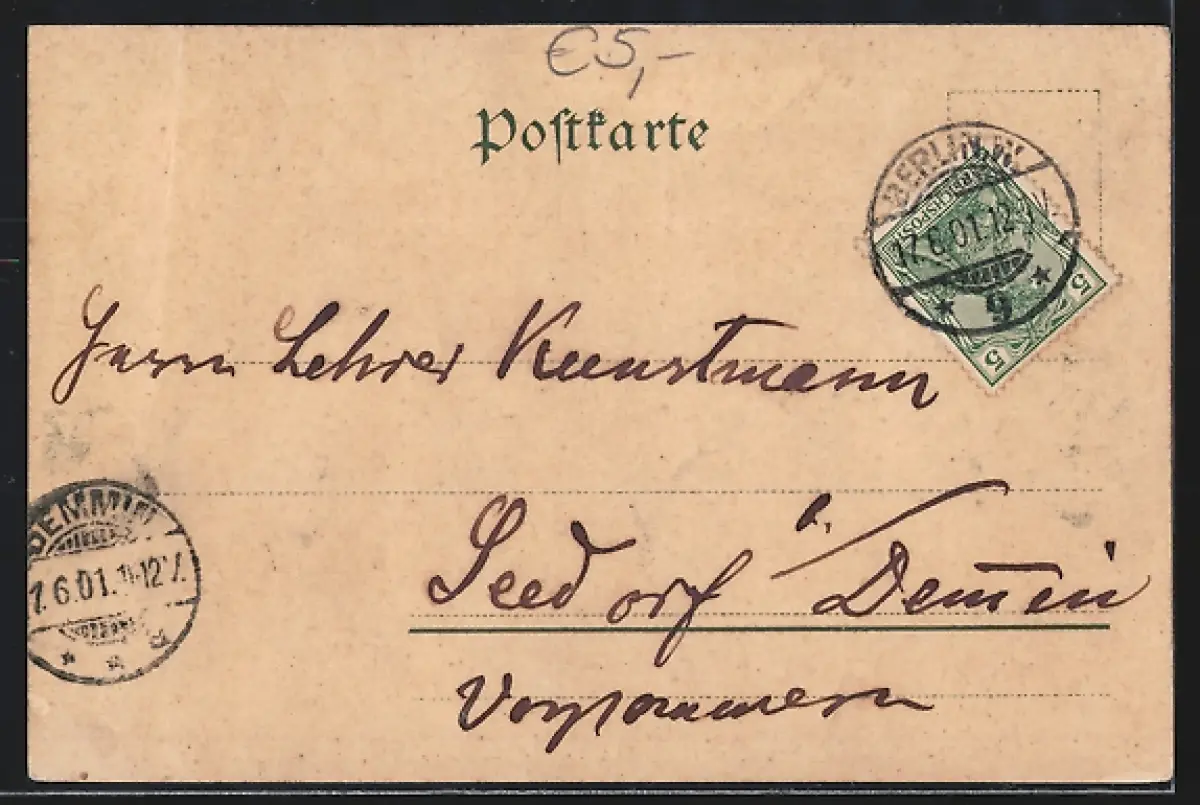 €5,-
Postkarte
BERLIN W.
17.6.01.12-
* 9 *
REICHSPOST
5
5
Herrn Lehrer Kunstmann
DEMMIN
7.6.01.11-12V.
Seedorf b/ Demmin
Vorpommern